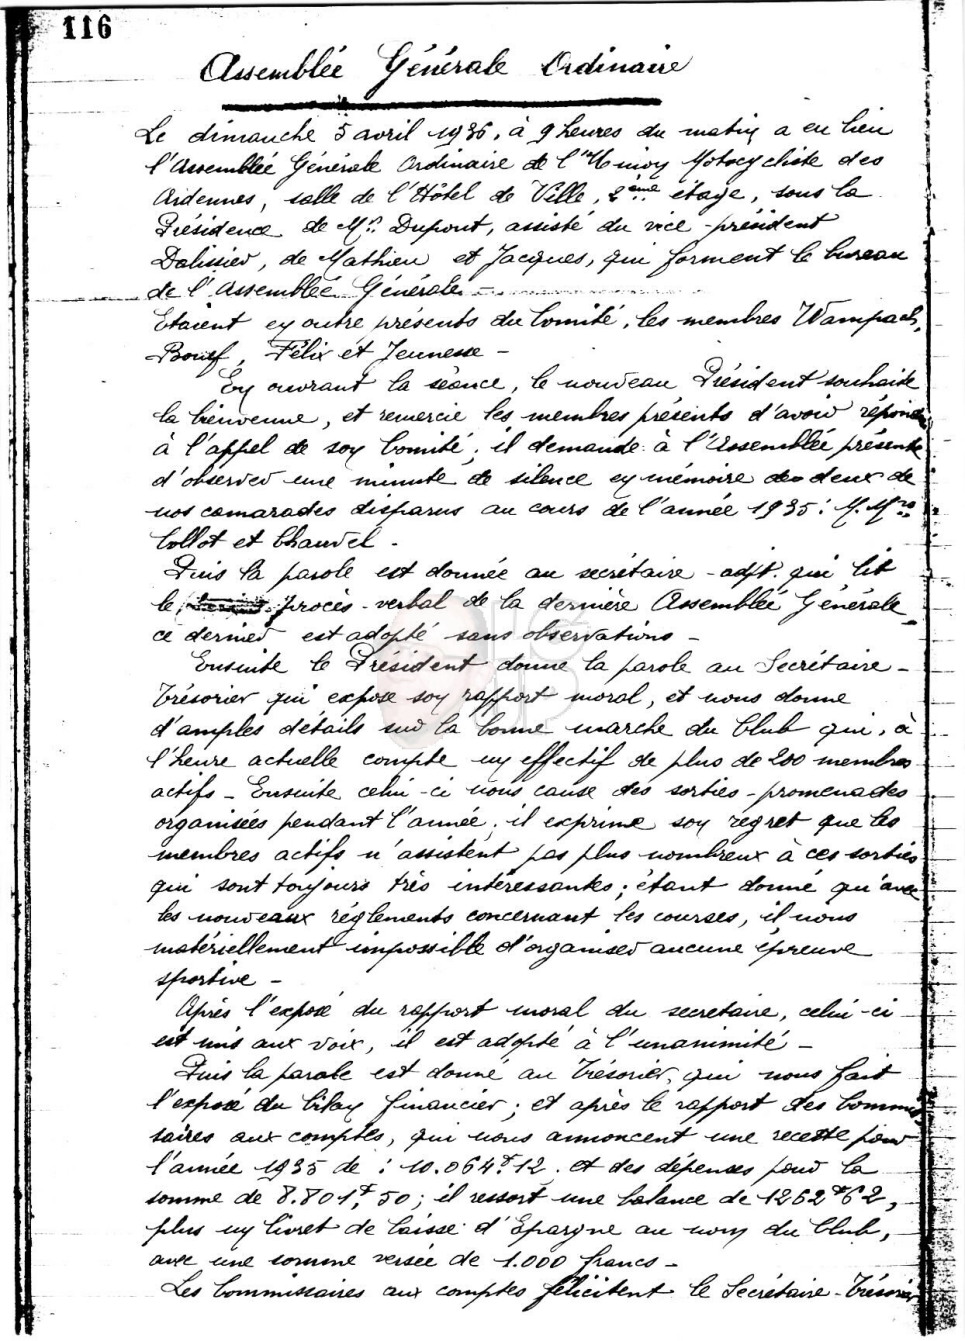 116
Assemblée Générale Ordinaire
Le dimanche 5 avril 1936, à 9 heures du matin a eu lieu
l'Assemblée Générale Ordinaire de l'Union Motocycliste des
Ardennes, salle de l'Hôtel de Ville, 2ème étage, sous la
Présidence de Mr. Dupont, assisté du vice-président
Dalissier, de Mathieu et Jacques, qui forment le bureau
de l'Assemblée Générale -
Etaient en outre présents du Comité, les membres Wampach,
Bouef, Félix et Jeunesse -
En ouvrant la séance, le nouveau Président souhaite
la bienvenue, et remercie les membres présents d'avoir répondu
à l'appel de son Comité, il demande à l'Assemblée présente
d'observer une minute de silence en mémoire des deux de
nos camarades disparus au cours de l'année 1935 : M. Mrs
Collot et Chauvel -
Puis la parole est donnée au secrétaire-adjt. qui lit
le procès-verbal de la dernière Assemblée Générale
ce dernier est adopté sans observations -
Ensuite le Président donne la parole au Secrétaire-
Trésorier qui expose son rapport moral, et nous donne
d'amples détails sur la bonne marche du Club qui, à
l'heure actuelle compte un effectif de plus de 200 membres
actifs - Ensuite celui-ci nous cause des sorties-promenades
organisées pendant l'année, il exprime son regret que les
membres actifs n'assistent pas plus nombreux à ces sorties
qui sont toujours très intéressantes ; étant donné qu'avec
les nouveaux réglements concernant les courses, il nous
matériellement impossible d'organiser aucune épreuve
sportive -
Après l'exposé du rapport moral du secretaire, celui-ci
est mis aux voix, il est adopté à l'unanimité -
Puis la parole est donné au Trésorier, qui nous fait
l'exposé du bilan financier ; et après le rapport des Commis-
saires aux comptes, qui nous annoncent une recette pour
l'année 1935 de : 10.064f12. et des dépenses pour la
somme de 8.801f,50 ; il ressort une balance de 1262f62,
plus un livret de Caisse d'Epargne au nom du Club,
avec une somme versée de 1.000 francs -
Les Commissaires aux comptes félicitent le Secrétaire-Trésorier